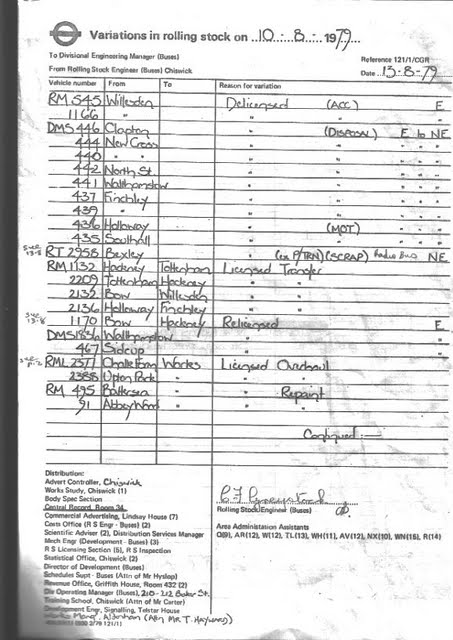 Variations in rolling stock on 10. 8. 1979.
To Divisional Engineering Manager (Buses)
From Rolling Stock Engineer (Buses) Chiswick
Reference 121/1/CGR
Date 13-8-79
Vehicle number From To Reason for variation
RM 545 Willesden Delicensed (ACC) E
1166 " " " "
DMS 446 Clapton " (DISPOSAL) E to NE
444 New Cross " " " " "
440 " " " " " " "
442 North St. " " " " "
441 Walthamstow " " " " "
437 Finchley " " " " "
439 " " " " " "
436 Holloway " (MOT) " " "
435 Southall " " " " "
13-8 RT 2958 Bexley " (ex P/TRN) (SCRAP) Radio Bus NE
RM 1132 Hackney Tottenham Licensed Transfer
2209 Tottenham Hackney " "
2132 Bow Willesden " "
2136 Holloway Finchley " "
13-8 1170 Bow Hackney Relicensed E
DMS Walthamstow " "
467 Sidcup " "
RML Chalk Farm Works Licensed Overhaul
2388 Upton Park " " "
RM 495 Battersea " " Repaint
91 Abbey Wood " " "
Continued:—
Distribution:
Advert Controller, Chiswick
Works Study, Chiswick (1)
Body Spec Section
Central Record, Room 34
Commercial Advertising, Lindsay House (7)
Costs Office (R S Engr - Buses) (2)
Scientific Adviser (2), Distribution Services Manager
Mech Engr (Development - Buses) (3)
R S Licensing Section (5), R S Inspection
Statistical Office, Chiswick (2)
Director of Development (Buses)
Schedules Supt - Buses (Attn of Mr Hyslop)
Revenue Office, Griffith House, Room 432 (2)
Operating Manager (Buses), 210-212 Baker St.
Training School, Chiswick (Attn of Mr Carter)
Development Engr, Signalling, Telstar House
Works Mangr, Aldenham (Attn Mr T. Hayward)
Rolling Stock Engineer (Buses)
Area Administration Assistants
Q(9), AR(12), W(12), TL(13), WH(11), AV(12), NX(10), WN(15), R(14)